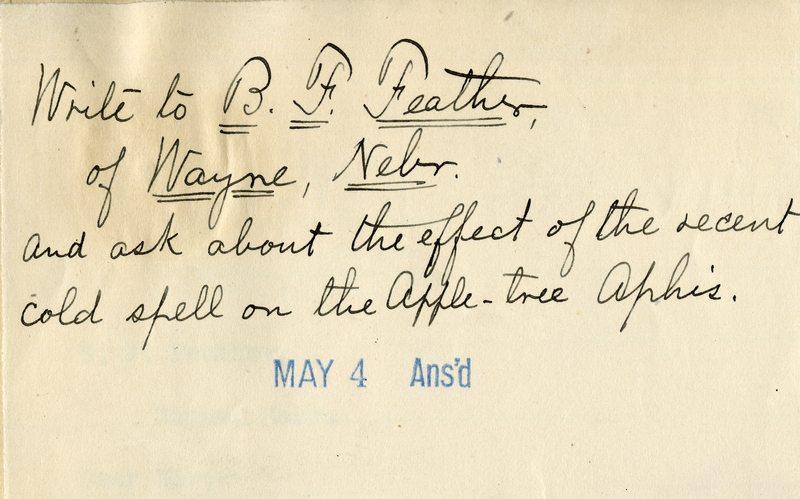 Write to B. F. Feather,
of Wayne, Nebr.
and ask about the effect of the recent
cold spell on the Apple-tree Aphis.
MAY 4 Ans'd